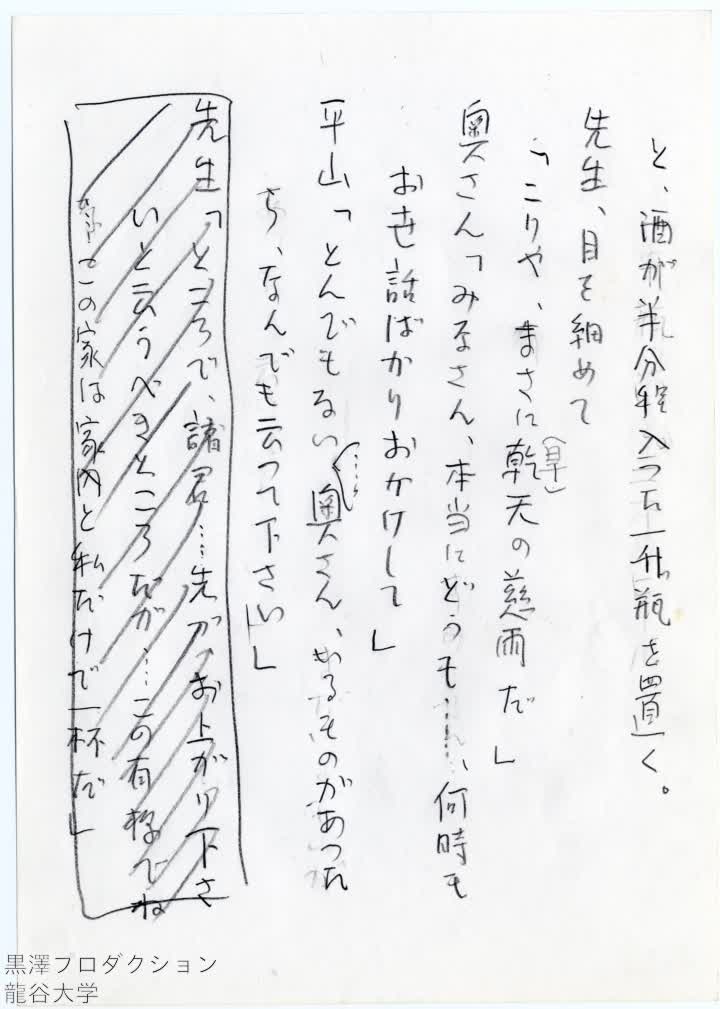 と、酒が半分程入った一升瓶を置く。
先生、目を細めて
「こりや、まさに乾天の慈雨だ」
(旱)
奥さん「みなさん、本当にどうも……、何時も
お世話ばかりおかけして」
平山「とんでもない奥さん、いるものがあった
……
ら、なんでも云って下さい」
先生「ところで、諸君……先づ、お上がり下さ
いと云うべきところだが……この有様でね
この家は家内と私だけで一杯だ」
黒澤プロダクション
龍谷大学